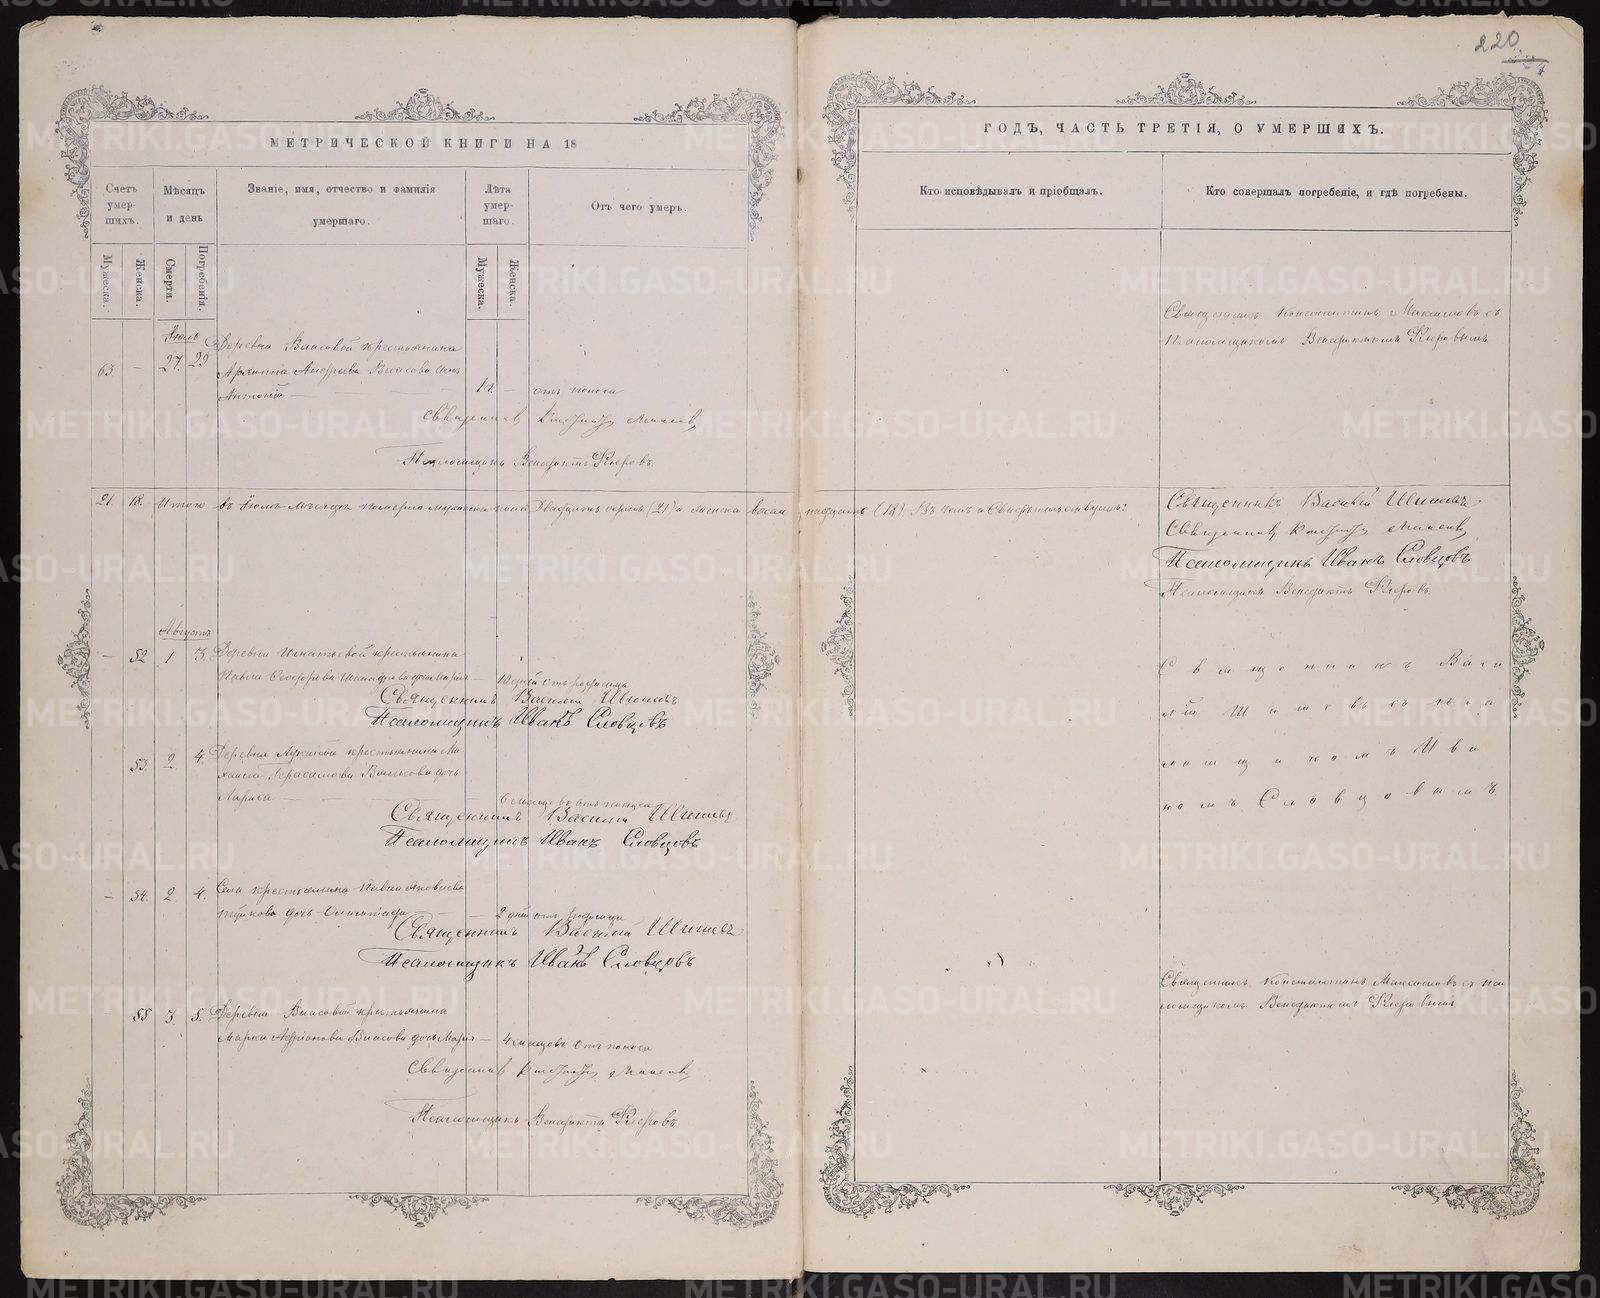 220
МЕТРИЧЕСКОЙ КНИГИ НА 18
ГОДЪ, ЧАСТЬ ТРЕТІЯ, О УМЕРШИХЪ.
Счетъ умер-шихъ.
Мѣсяцъ и день
Званіе, имя, отчество и фамилія умершаго.
Лѣта умер-шаго.
Отъ чего умеръ.
Кто исповѣдывалъ и пріобщалъ.
Кто совершалъ погребеніе, и гдѣ погребены.
Мужеска.
Женска.
Смерти.
Погребенія.
Мужеска.
Женска.
Іюль
63. — 27. 29 Деревни Власовой крестьянина
Архиппа Андреева Власова сынъ
Антоній — отъ поноса
Священникъ
Псаломщикъ Венедиктъ Флеровъ.
Священникъ Константинъ Максимовъ съ
Псаломщикомъ Венедиктомъ Флеровымъ
21. 18. Итого въ Іюлѣ мѣсяцѣ померло мужеска пола Двадцать одинъ (21) а женска восемнадцать (18). Въ чемъ и Свидѣтельствуемъ:
Священникъ Василій Шишевъ
Священникъ
Псаломщикъ Иванъ Словцовъ
Псаломщикъ Венедиктъ Флеровъ.
Августъ
— 52 1. 3. Деревни Игнатьевой крестьянина
Павла Феодорова дочь Марія — 10 дней отъ родимца
Священникъ Василій Шишевъ
Псаломщикъ Иванъ Словцовъ
Священникъ Васи
лій Шишевъ съ Пса
ломщикомъ Ива
номъ Словцовымъ
53. 2. 4 Деревни Лукиной крестьянина Ми-
хаила Герасимова Власова дочь
Лариса — 6 месяцовъ отъ поноса
Священникъ Василій Шишевъ
Псаломщикъ Иванъ Словцовъ
— 54. 2. 4. Села крестьянина Павла Яковлева
дочь — 2 дней отъ родимца
Священникъ Василій Шишевъ
Псаломщикъ Иванъ Словцовъ
55 3. 5. Деревни Власовой крестьянина
Марка Адріанова Власова дочь Марія — 4 месяцовъ отъ поноса
Священникъ
Псаломщикъ Венедиктъ Флеровъ
Священникъ Константинъ Максимовъ съ Пса
ломщикомъ Венедиктомъ Флеровымъ
METRIKI.GASO-URAL.RU